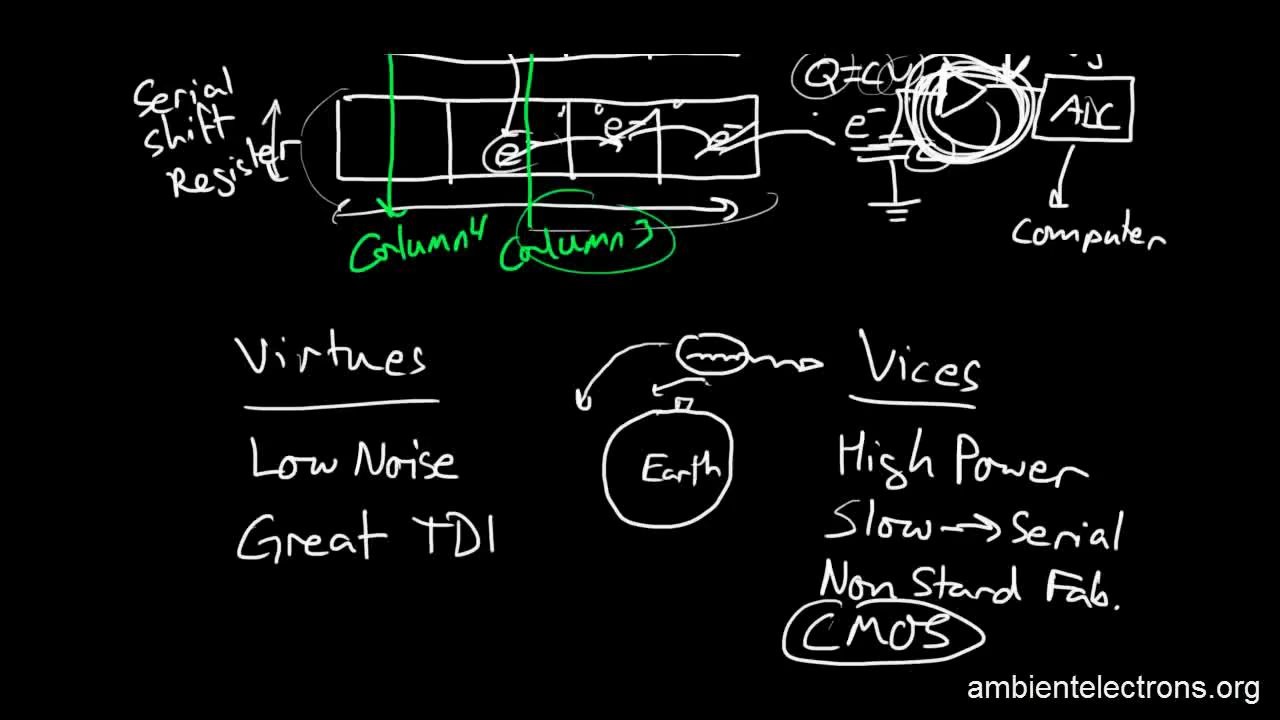 Serial
shift
Register
e
e-
e-
Q=CV
e-
ADC
Computer
Column 4
Column 3
Virtues
Low Noise
Great TDI
Earth
Vices
High Power
Slow → Serial
Non Stand Fab.
CMOS
ambientelectrons.org